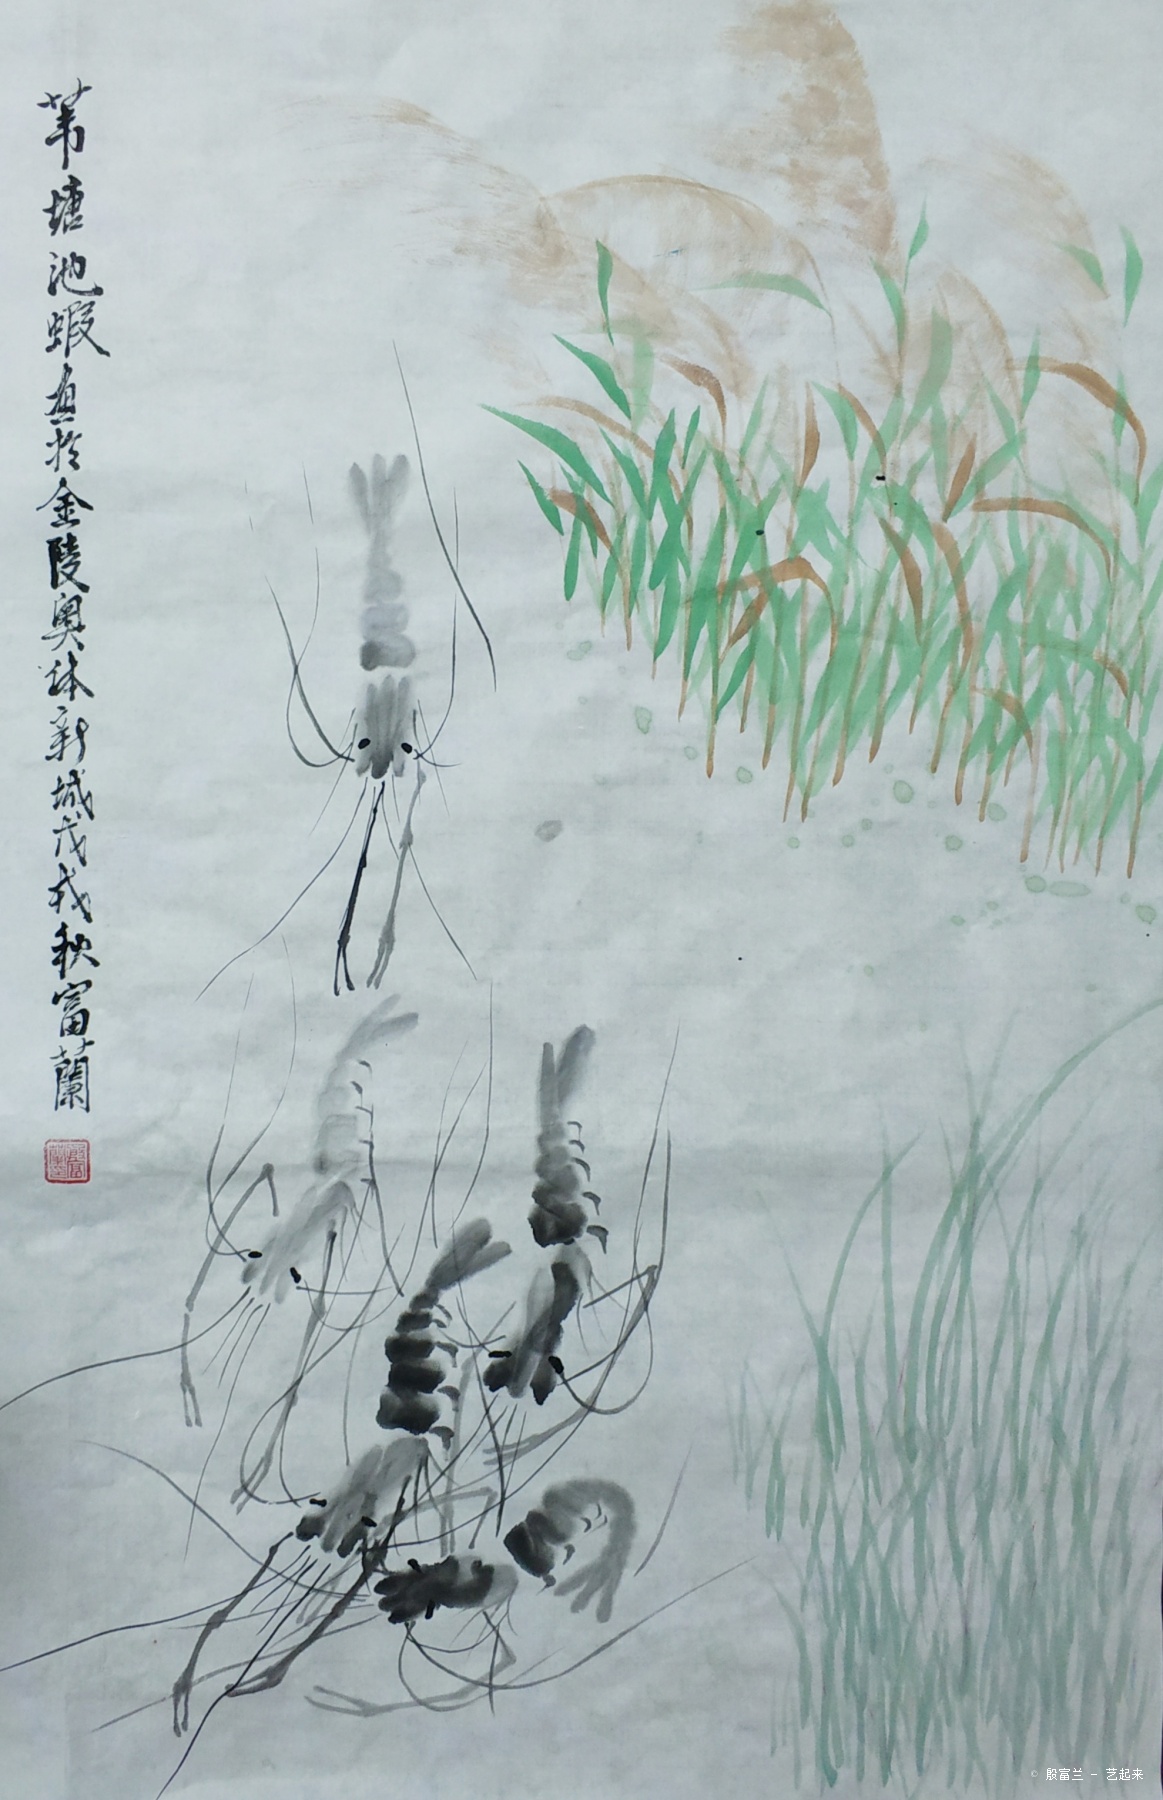 苇塘池蝦画於金陵奥体新城戊戌秋富蘭
© 殷富兰 - 艺起来